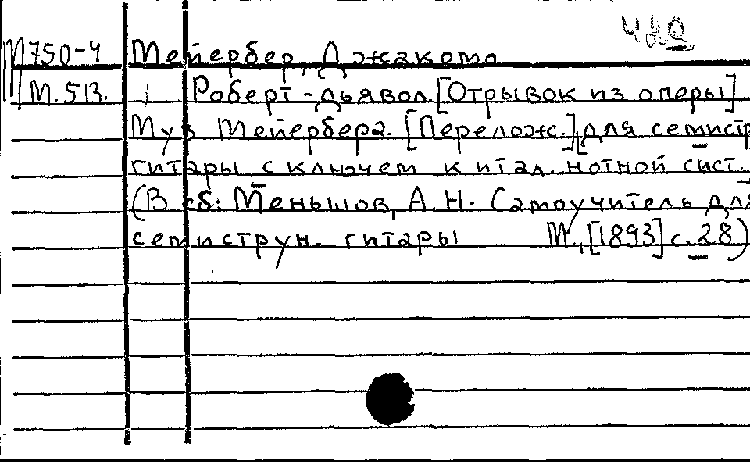 420
М750-4 Мейербер, Джакомо
М.513. Роберт-дьявол. [Отрывок из оперы]
Муз. Мейербера. [Перелож.] для семистр
гитары с ключем к итал. нотной сист.
(В сб: Меньшов, А.Н. Самоучитель для
семиструн. гитары М., [1893] с. 28)